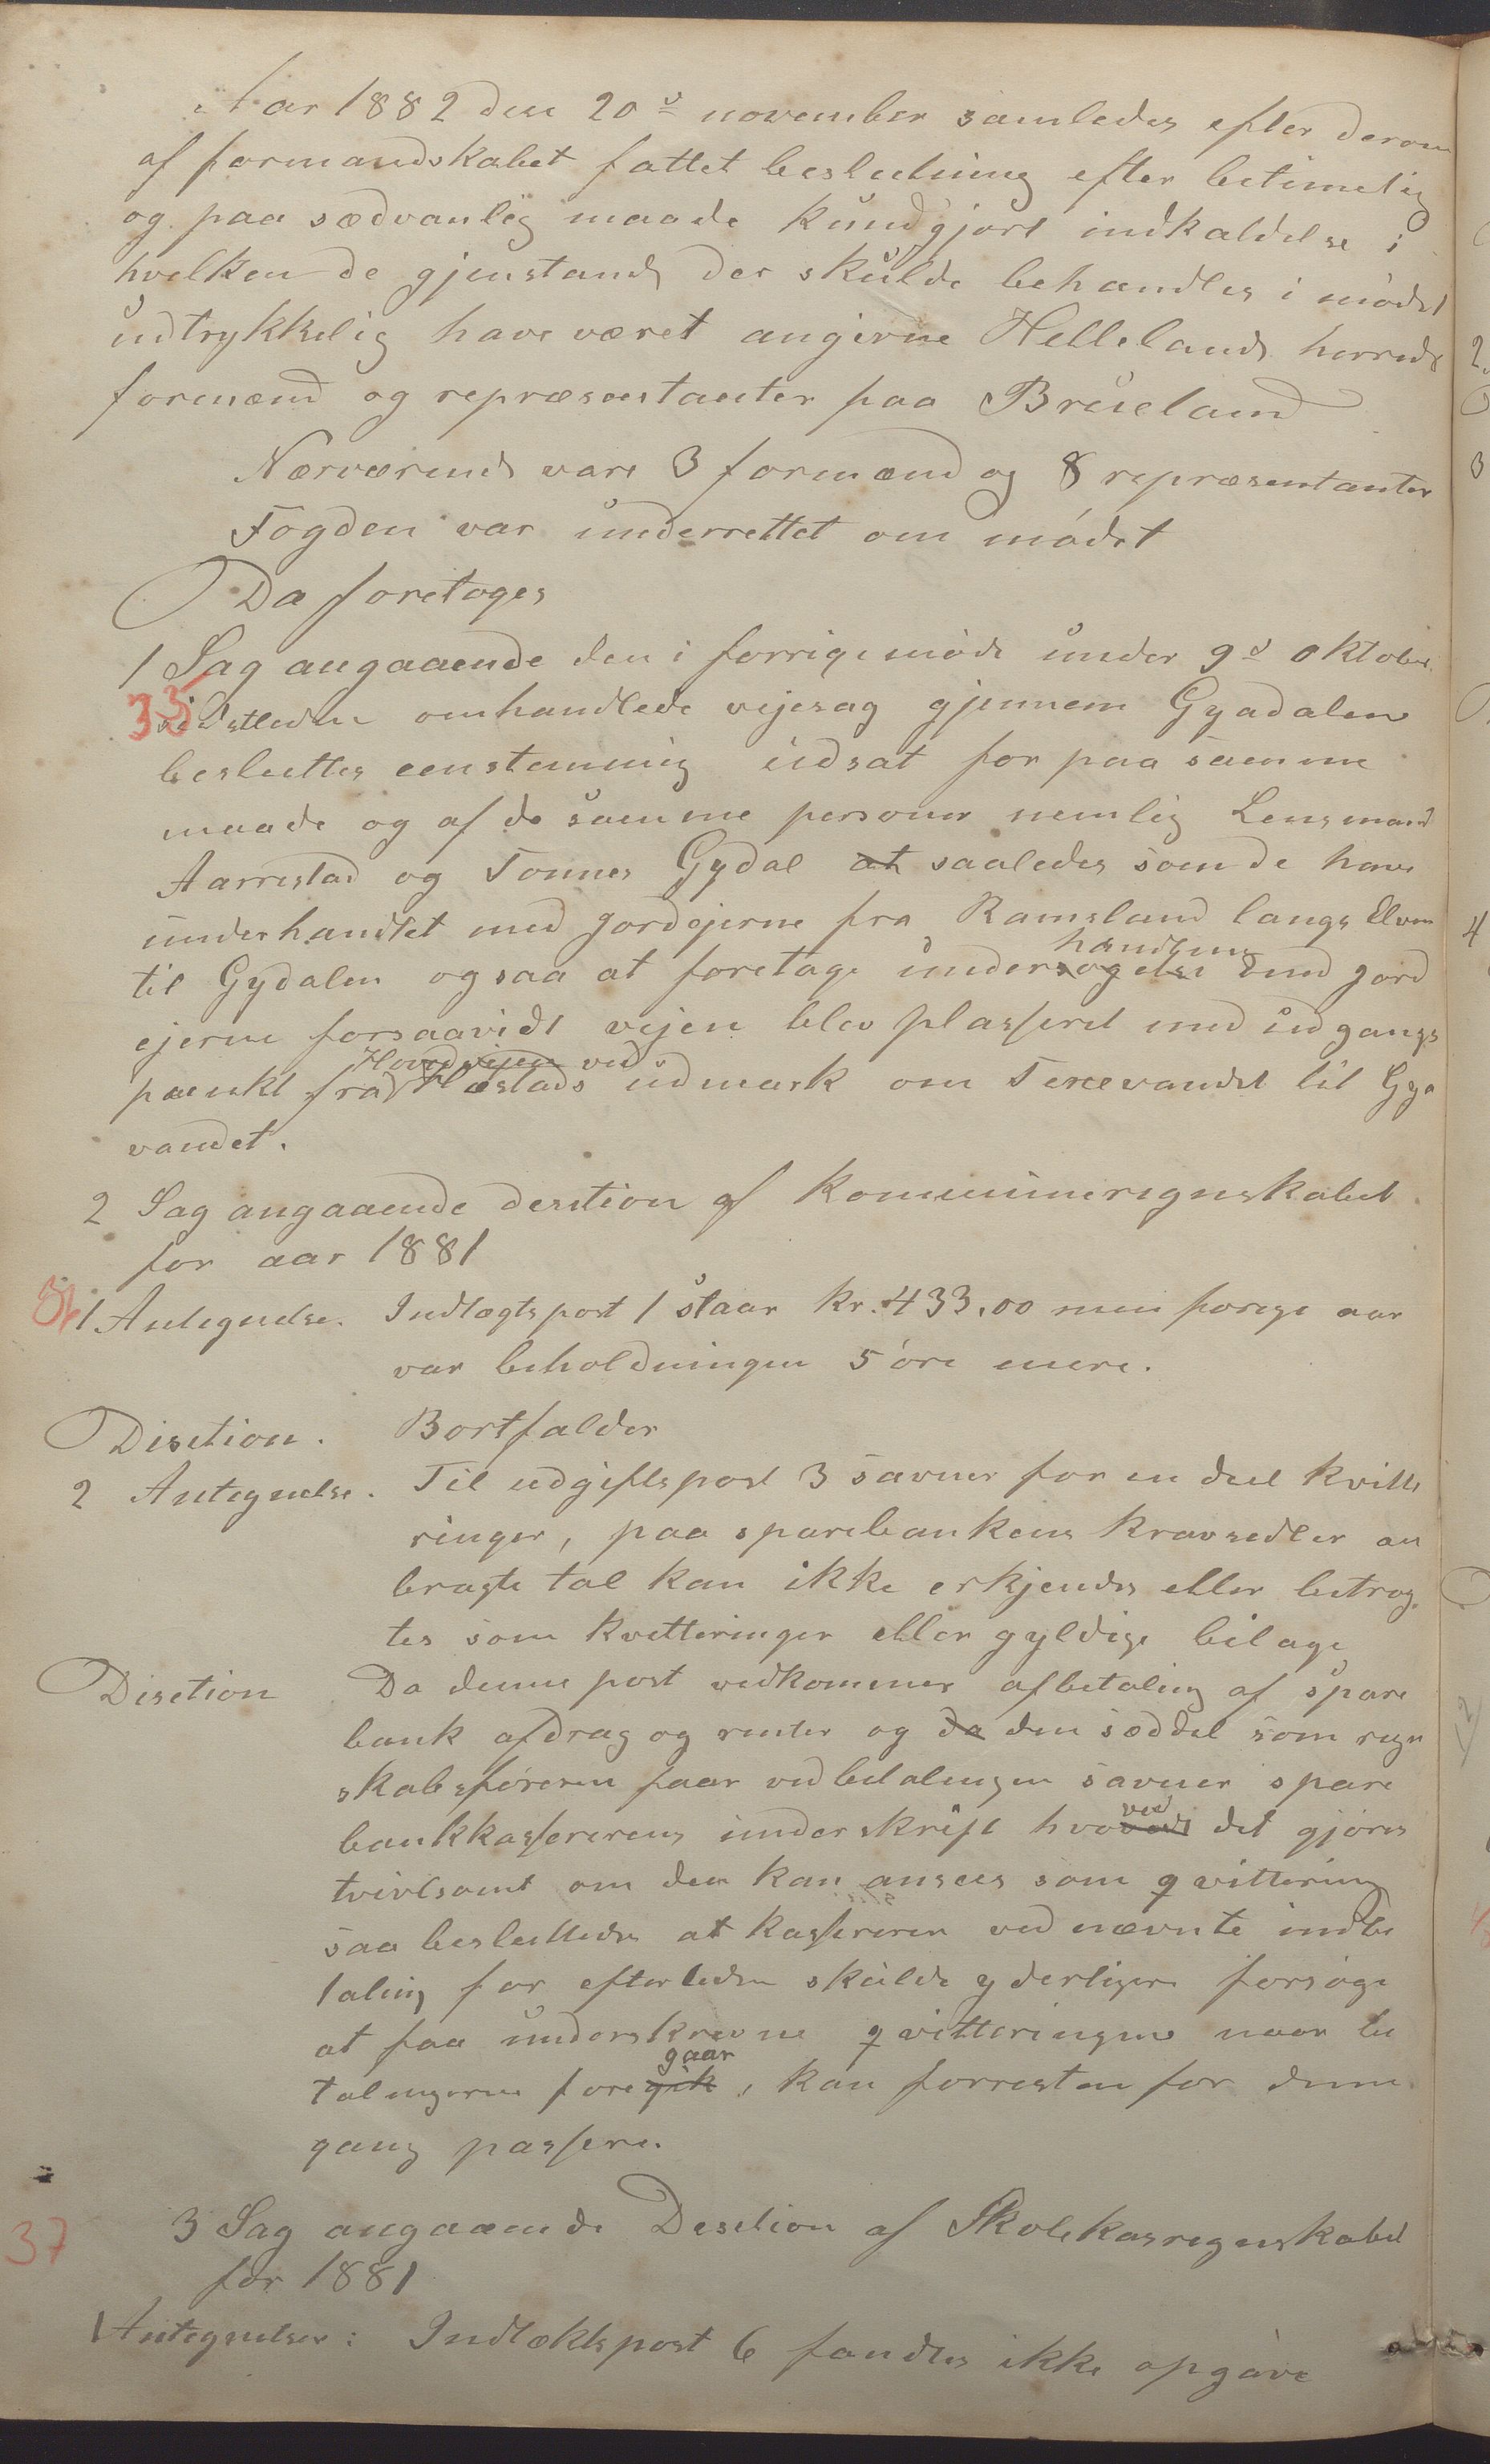 Aar 1882 den 20de november samledes efter derom
af formandskabet fattet beslutning efter betimelig
og paa sædvanlig maade kundgjort indkaldelse i
hvilken de gjenstande der skulde behandles i mødet
udtrykkelig have været angivne Hellelands herreds
formænd og repræsentanter paa Brueland
Nærværende vare 3 formænd og 8 repræsentanter
Fogden var underrettet om mødet
Da foretoges
1 Sag angaaende den i forrige møde under 9de oktober
35
sidstleden omhandlede vejesag gjennem Gyadalen
besluttes eenstemmig udsat for paa samme
maade og af de samme personer nemlig Lensmand
Aarrestad og Tønnes Gydal at saaledes som de have
underhandlet med jordejerne fra Ramsland langs Elven
til Gydalen ogsaa at foretage undersøgelse handling med jord
ejerne forsaavidt vejen blev plasseret med udgangs
punkt fra Hovedvejen ved Hæstads udmark om Terevandet til Gya
vandet.
2 Sag angaaende desition af kommuneregnskabet
for aar 1881
36
1 Antegnelse. Indtægtspost 1 staar kr. 433.00 men forige aar
var beholdningen 5 øre mere.
Disition. Bortfalder
2 Antegnelse. Til udgiftspost 3 savner for en deel kvitte
ringer, paa sparebankens kravsedler an
bragte tal kan ikke erkjendes eller betrag
tes som kvitteringer eller gyldige bilage
Disition Da denne post vedkommer afbetaling af spare
bank afdrag og renter og da den seddel som regn
skabsføreren faar ved betalingen savner spare
bankkassererens underskrift hvorved det gjøres
tvivlsomt om den kan ansees som qvittering
saa besluttedes at kassereren ved nævnte indbe
taling for efterleden skulde yderligere forsøge
at faa underskrevne qvitteringene naar be
talingerne foregik gaar, kan forresten for denne
gang passere.
37
3 Sag angaaende Desition af Skolekasregnskabet
for 1881
1 Antegnelser: Indtæktspost 6 fandtes ikke opgave